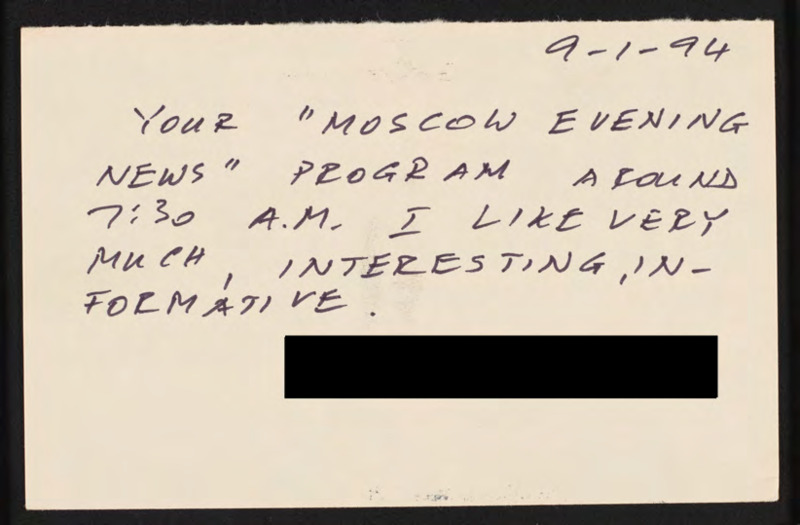 9-1-94
YOUR "MOSCOW EVENING
NEWS" PROGRAM AROUND
7:30 A.M. I LIKE VERY
MUCH, INTERESTING, IN-
FORMATIVE.